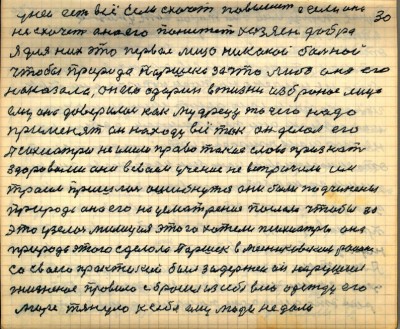 30
у ней есть всё если скажет повесит а если она
не скажет она его пометит хозяин добра
я для них это первое лицо никакой больной
чтобы природа Паршека за что либо она его
наказала, он его одарил в жизни избраное лицо
ему она доверилась как мудрецу то чего надо
применят он находу всё так он делал его
психиатры не имели право такие слова признать
здоровыми они в своём учение не встречали им
пришлось ошибнутся они были подчинены
природе она его на усмотрения послала чтобы за
это узелась милиция этого хотели психиатры она
природа этого сделала Паршек в районе
со своею практикой был задержен он нарушил
жизненое правило сбросил из себя всю одежду его
море тянуло к себе ему люди не дали